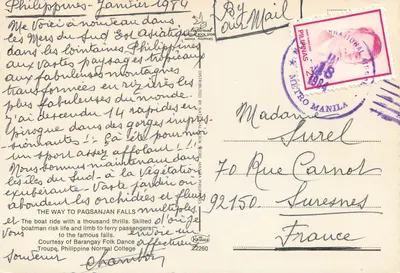 Philippines - Janvier 1984
Me Voici à nouveau dans
les Mers du Sud Est Asiatique
dans les lointaines Philippines
aux vastes paysages tropicaux
aux fabuleuses montagnes
transformées en rizières les
plus fabuleuses du monde.
J'ai descendu 14 rapides en
Pirogue dans des gorges impres-
sionnantes !! ça été pour moi
un sport assez affolant !!!
Nous sommes maintenant dans
les îles du Sud - à la Végétation
exubérante - Vaste jardin où
abondent les orchidées et fleurs
multiples
d'où je
Vous envoie un
affectueux
Souvenir
Chambon
THE WAY TO PAGSANJAN FALLS
The boat ride with a thousand thrills. Skilled
boatman risk life and limb to ferry passengers
to the famous falls.
Courtesy of Barangay Folk Dance
Troupe, Philippine Normal College
22260
By
air Mail
PILIPINAS
1984
METRO MANILA
Madame
Surel
70 Rue Carnot
92150 Suresnes
France